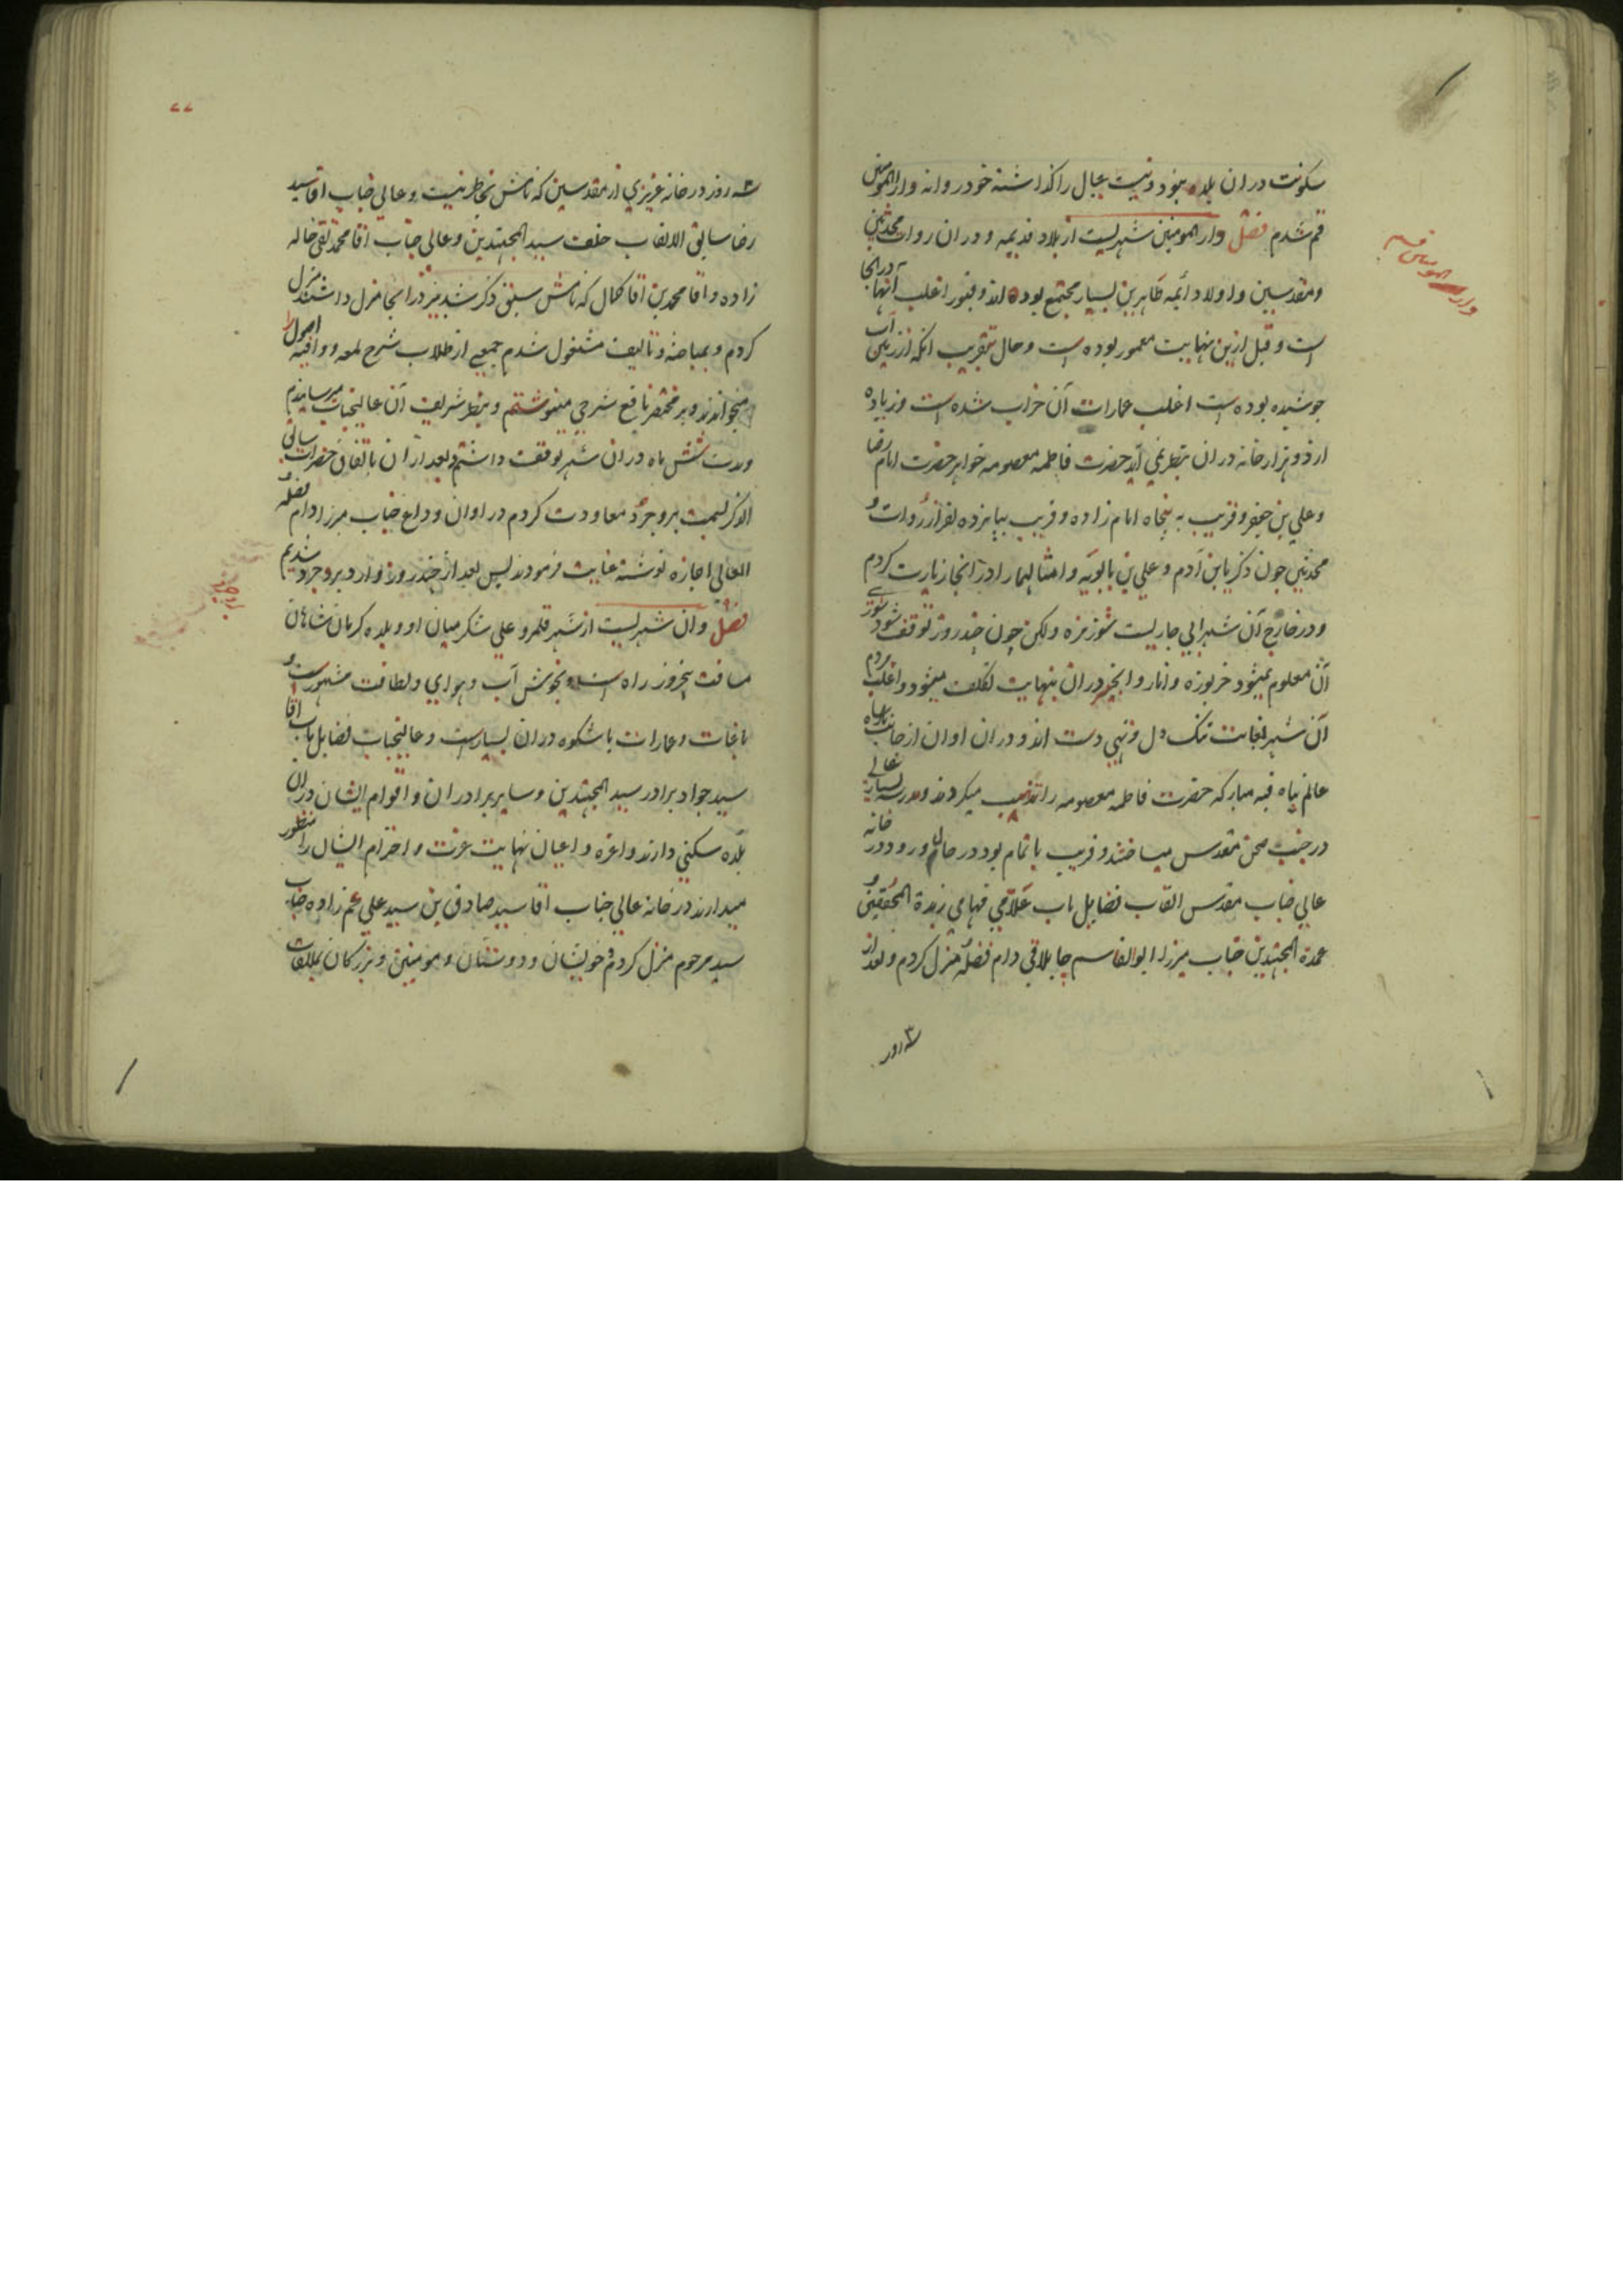 سکونت دران بلده بنود و نیت عیال را کذاشته خود روانه دار المومنین
قم شدم فصل دار المومنین شهریست از بلاد قدیمه و دران روات محدثین
و مقدسین و اولاد ائمه طاهرین بسیار مجتمع بوده اند و قبور اغلب انها در انجا
است و قبل ازین نهایت معمور بوده است و حال بتقریب آنکه از زمین آب
جوشیده بوده است اغلب عمارات آن خراب شده است و زیاده
از دو هزار خانه دران بنظر نمی آید حضرت فاطمه معصومه خواهر حضرت امام رضا
و علی بن جعفر و قریب به پنجاه امام زاده و قریب بپانزده نفر از روات و
محدثین چون ذکریا بن آدم و علی بن بابویه و امثالهما را در آنجا زیارت کردم
و در خارج آن شهر آبی جاریست شور مزه ولکن چون چند روز توقف شود شوری
آن معلوم نمیشود خربوزه و انار و انجیر دران بنهایت تکلف میشود و اغلب مردم
آن شهر بغایت تنک دل و تهی دست اند و دران اوان از جانب پادشاه
عالم پناه قبه مبارکه حضرت فاطمه معصومه را تذهیب میکردند و مدرسه بسیار عالی
در جنب صحن مقدس میساختند و قریب باتمام بود در حال ورود در خانه
عالی جناب مقدس القاب فضایل مآب علامی فهامی زبدة المحققین و
عمدة المجتهدین جناب میرزا ابوالقاسم جاپلاقی دام فضله منزل کردم و بعد از
سه روز
دار المومنین قم
٧٧
سه روز در خانه عزیزی از مقدسین که نامش بخاطر نیست و عالی جناب آقا سید
رضا سابق الالقاب خلف سید المجتهدین و عالی جناب آقا محمد تقی خاله
زاده و آقا محمد بن آقا کمال که نامش سبق ذکر شد نیز در انجا منزل داشتند منزل
کردم و بمباحثه و تالیف مشغول شدم جمعی از طلاب شرح لمعه و وافیه اصول را
میخواندند و بر مختصر نافع شرحی مینوشتم و بنظر شریف آن عالیجناب میرسانیدم
و مدت شش ماه دران شهر توقف داشتم و بعد از آن باتفاق حضرات سابق
الذکر بسمت بروجرد معاودت کردم در اوان وداع جناب میرزا دام فضله
العالی اجازه نوشته عنایت فرمودند پس بعد از چند روز وارد بروجرد شدیم
فصل و آن شهریست از شهر قلمرو علی شکر میان او و بلده کرمان شاهان
مسافت پنجروز راه است و بخوش آب و هوای و لطافت مشهورست و
باغات و عمارات با شکوه دران بسیارست و عالیجناب فضایل مآب آقا
سید جواد برادر سید المجتهدین و سایر برادران و اقوام ایشان دران
بلده سکنی دارند و اعزه و اعیان نهایت عزت و احترام ایشان را منظور
میدارند در خانه عالی جناب آقا سید صادق بن سید علی عم زاده جناب
سید مرحوم منزل کردم خویشان و دوستان و مومنین و بزرکان بملاقات